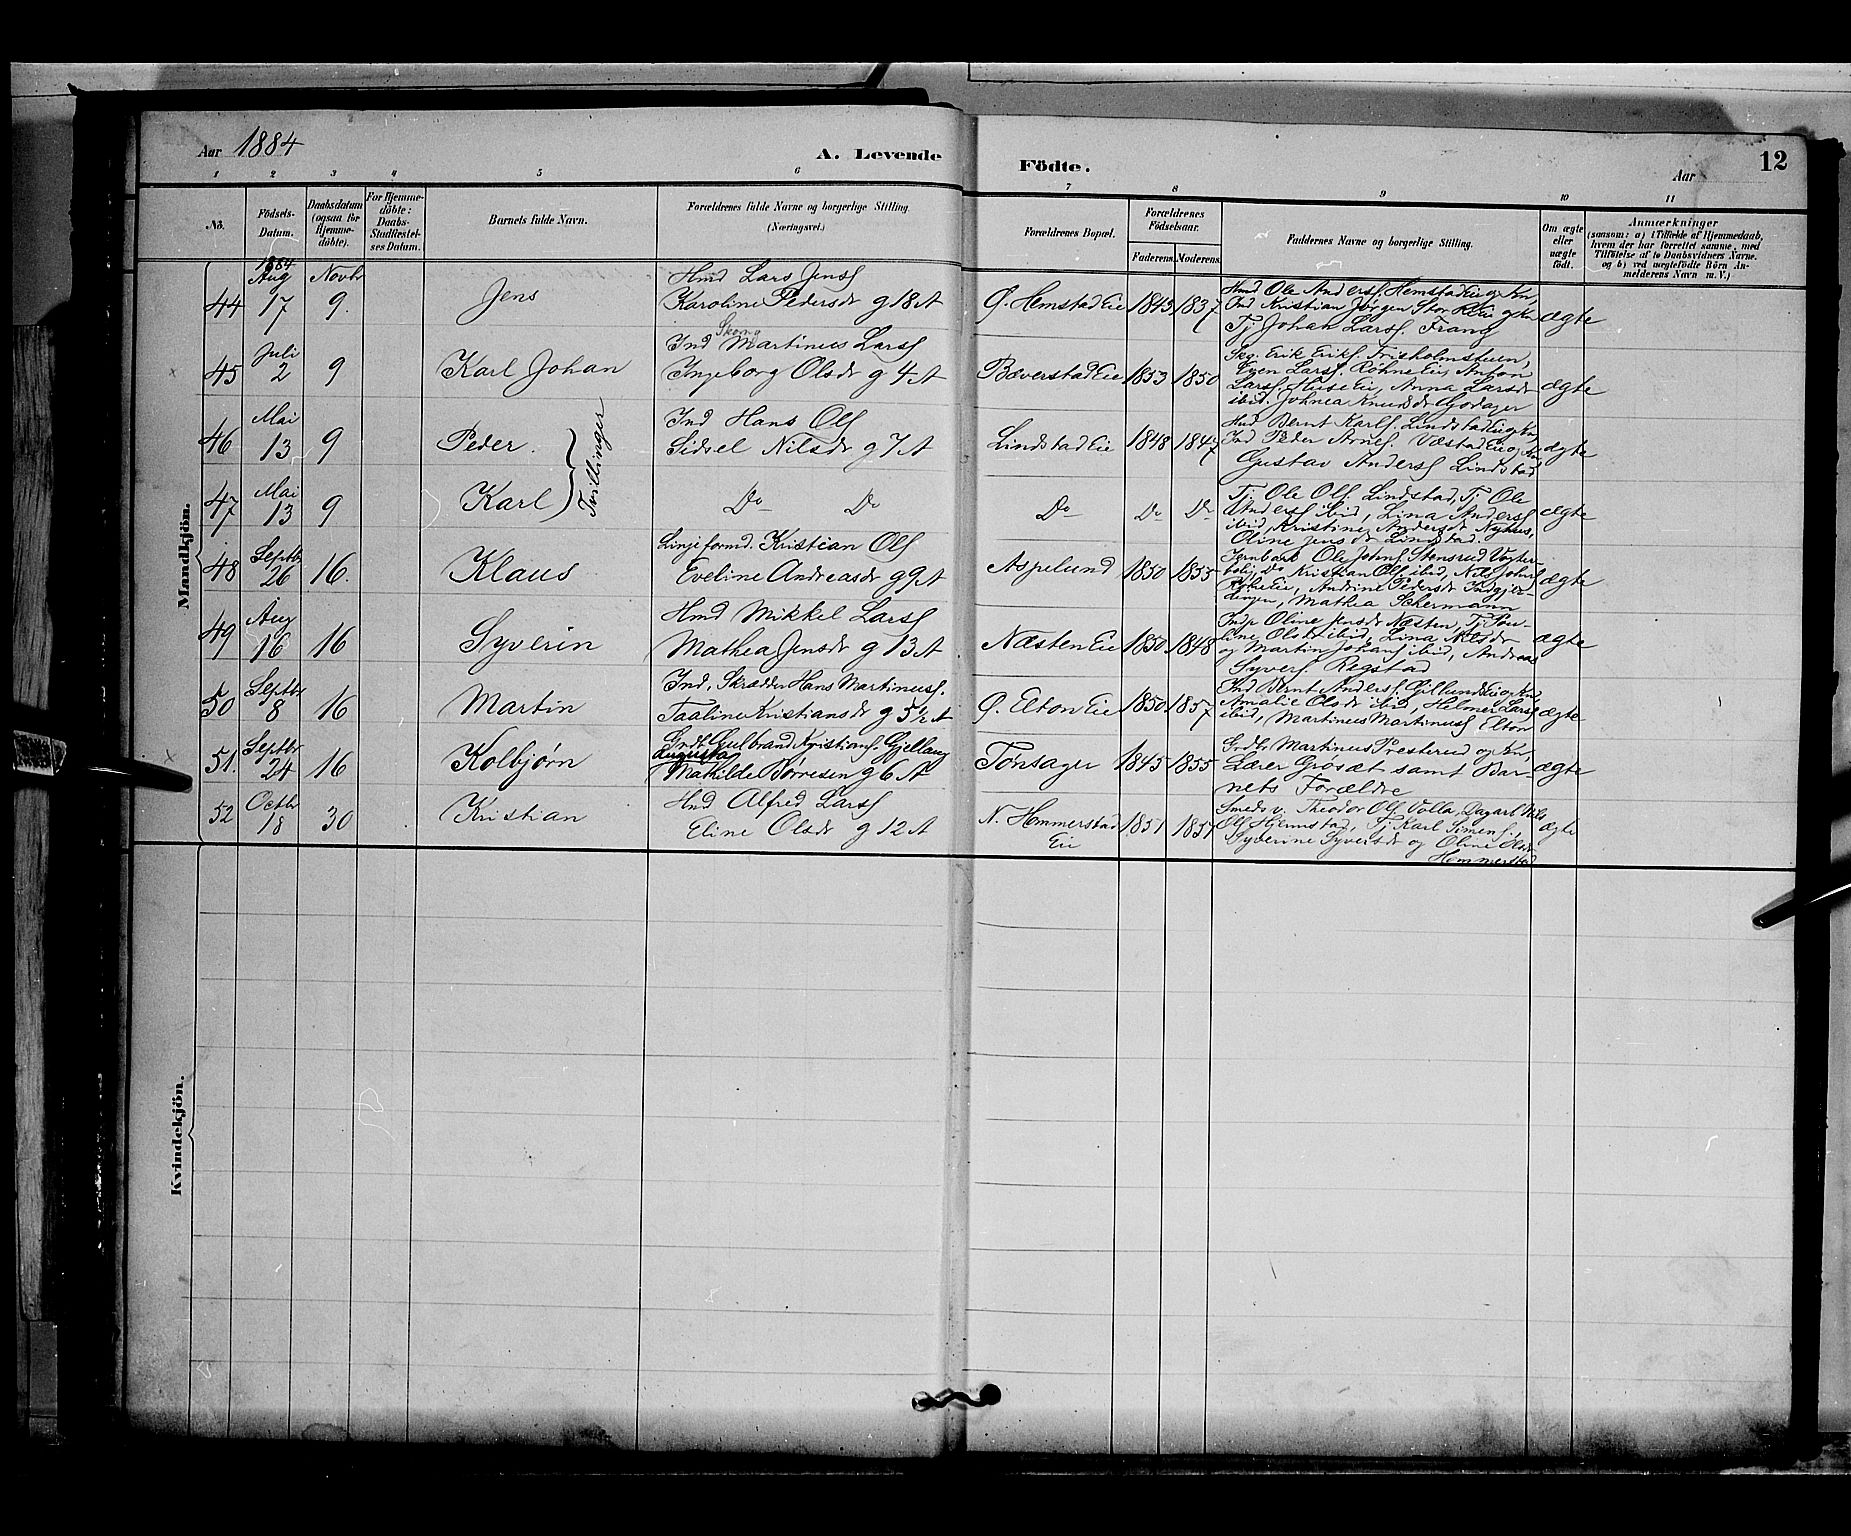 Aar 1884
A. Levende Födte.
Aar
12
1 2 3 4 5 6 7 8 9 10 11
No.
Födsels-Datum.
Daabsdatum (ogsaa for Hjemme-döbte).
For Hjemme-döbte: Daabs-Stadfæstelses Datum.
Barnets fulde Navn.
Forældrenes fulde Navne og borgerlige Stilling. (Næringsvei.)
Forældrenes Bopæl.
Forældrenes Födselsaar.
Faderens. Moderens.
Faddernes Navne og borgerlige Stilling.
Om ægte eller uægte födt.
Anmærkninger
(saasom: a) i Tilfælde af Hjemmedaab, hvem der har forrettet samme, med Tilföielse af to Daabsvidners Navne. og b) ved uægtefödte Börn Anmelderens Navn m. V.)
Mandkjön.
44 1884 Aug 17 Novbr 9. Jens
Hmd Lars Jensf
Karoline Pedersdr g 18 A
Ø. Hemstad Eie 1843 1837
Hmd Ole Andersf Hemstad Eie og Kn,
Ind Kristian Jørgen Eie og Kn
Tj Johan Larsf Frang
ægte
45 Juli 2 9 Karl Johan
Ind Martinus Larsf
Ingeborg Olsdr g 4 A
Bæverstad Eie 1853 1850
Erik Eriksf.
Even Larsf. Røhne Eie, Anton
Larsf. Huse Eie, Anna Larsdr
ibid. Johnea Knudsdr Godager
ægte
46 Mai 13 9 Peder.
Tvillinger
Ind Hans Olsf
Sidsel Nilsdr g 7 A
Lindstad Eie 1848 1847
Hmd Bernt Karlsf. Lindstad Eie og Kn,
Ind Peder Arnesf. Væstad Eie og Kn
Gustav Andersf Lindstad
ægte
47 Mai 13 9 Karl
Do Do
Do Do Do
Tj. Ole Olsf. Lindstad, Tj Ole
Andersf ibid, Lina Andersdr
ibid, Kristine Andersdr Nyhus,
Oline Jensdr Lindstad.
ægte
48 Septbr 26 16. Klaus
Linjeformd. Kristian Olsf
Eveline Andreasdr g 9 A
Aspelund 1850 1855
Ole Johnsf Stensrud
Do Kristian Olsf ibid, Nils Johnsf
Andrine Pedersdr
Mathea Schermann
ægte
49 Aug 16 16 Syverin
Hmd Mikkel Larsf
Mathea Jensdr g 13 A
Næsten Eie 1850 1848
Oline Jensdr Næsten,
Olsdr ibid, Lina Nilsdr
og Martin Johansf ibid, Andreas
Syversf. Ragstad
ægte
50 Septbr 8 16 Martin
Ind. Skrædder Hans Martinusf.
Taaline Kristiansdr g 5½ A
Ø. Elton Eie 1850 1857
Ind Bernt Andersf. Gillund Eie og Kn
Amalie Olsdr ibid, Helmer Larsf
ibid, Martinus Martinusf Elton
ægte
51. Septbr 24 16 Kolbjørn
Gulbrand Kristiansf. Gjellang
Augusta
Mathilde Børresen g 6 A
Tønsager 1845 1855
Martinus Presterud og Kn,
Lærer Grøsæt samt Bar-
nets Forældre
ægte
52 Octbr 18 30 Kristian
Hmd Alfred Larsf
Eline Olsdr g 12 A
N. Hemmerstad Eie 1851 1857
Theodor Olsf Volla, Dagarb Nils
Olsf Hjemstad, Tj Karl Simensf.,
Syverine Syversdr og Oline Olsdr
Hemmerstad
ægte
Kvindekjön.